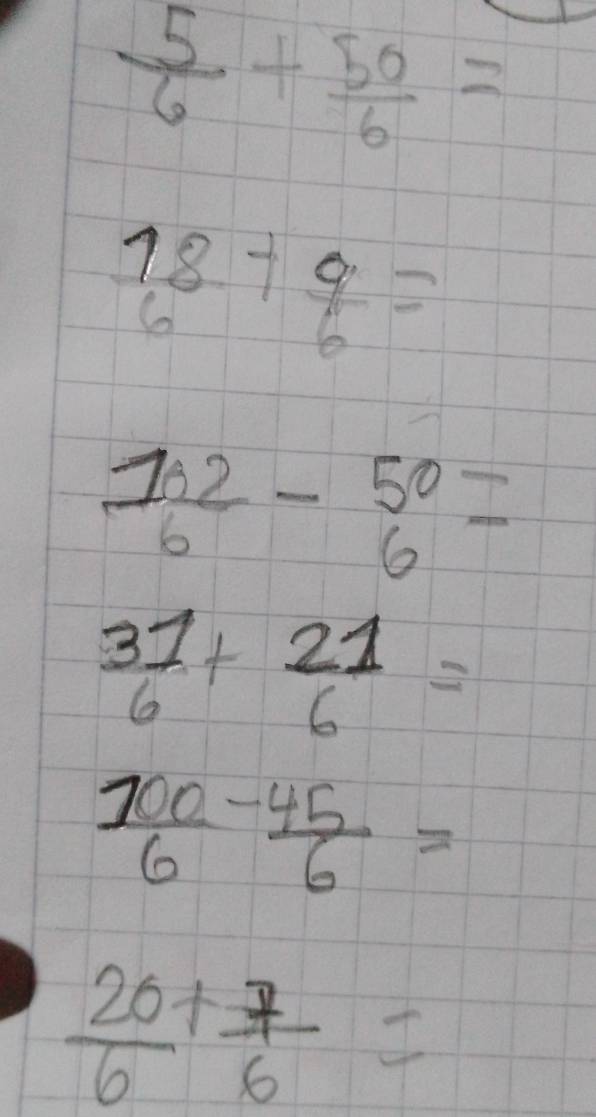 5/6 + 50/6 =
18/6 + 9/6 =
102/6 - 50/6 =
31/6 + 21/6 =
100/6 - 45/6 =
20/6 + 7/6 =